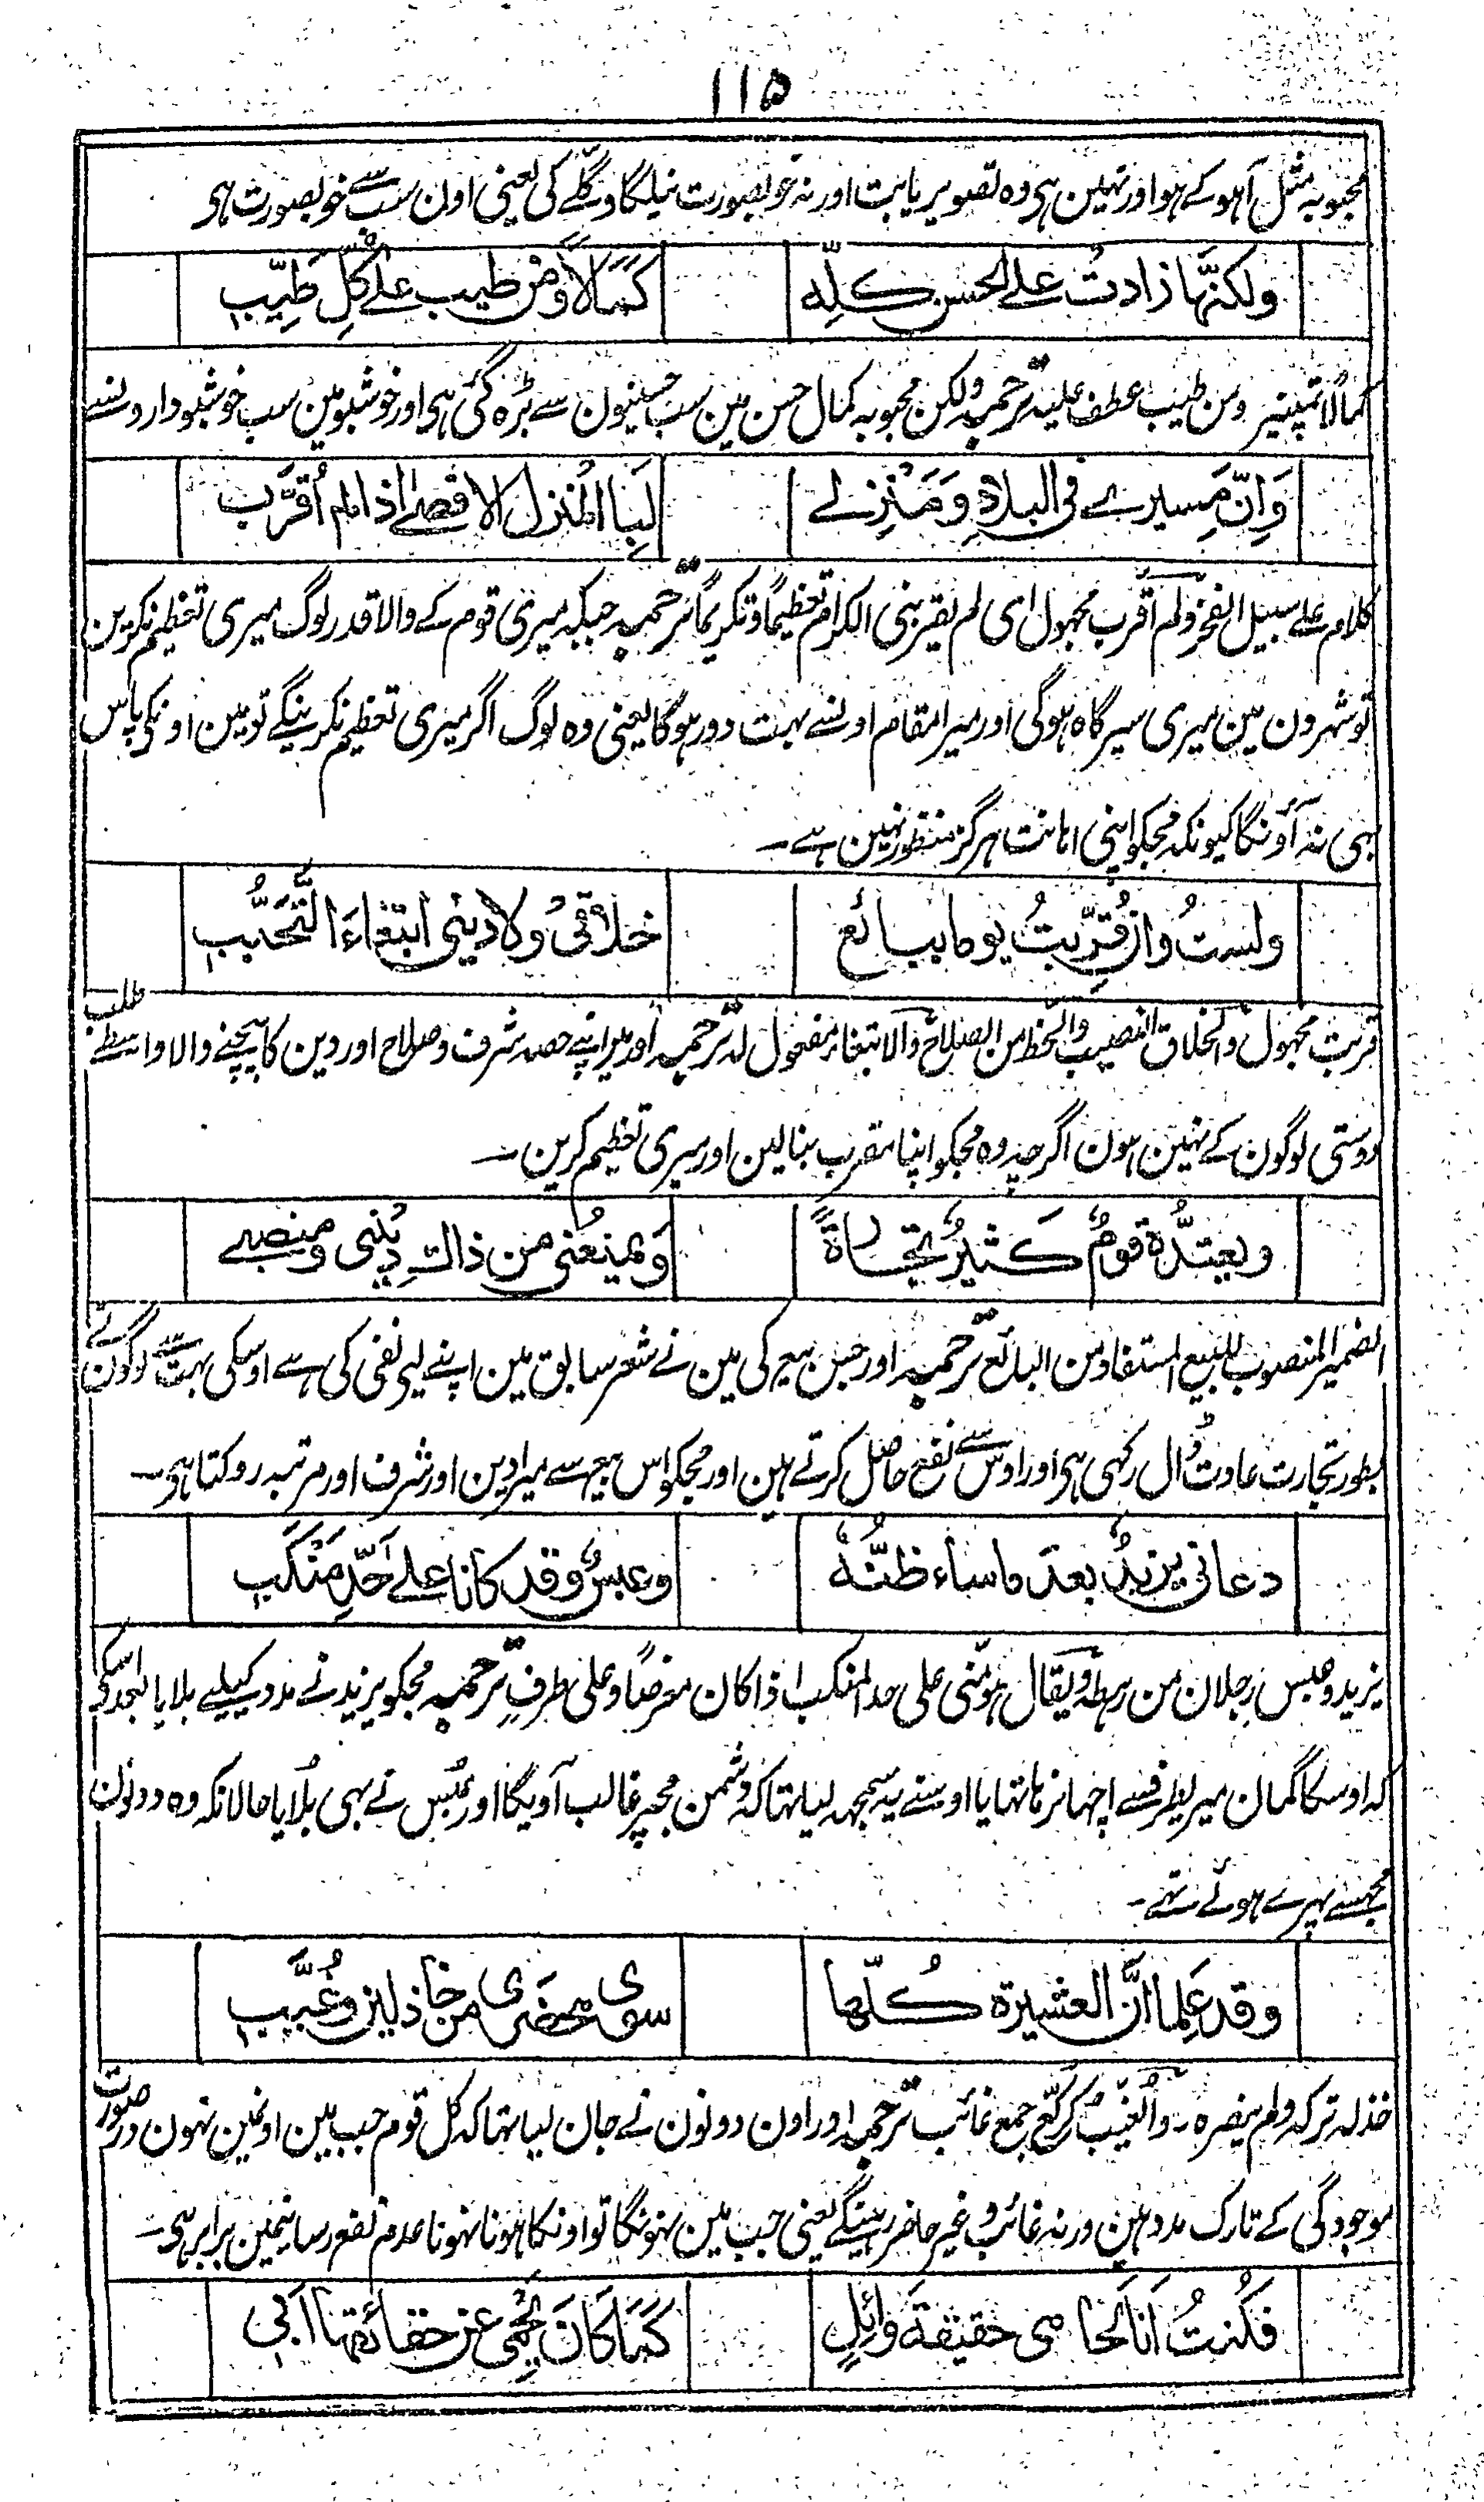 ۱۱۵
محبوبہ مثل آہو کے ہو اور نہین ہی وہ تصویر یا بت اور نہ خوبصورت نیلگاو گلے کی یعنی اون سب سے خوبصورت ہی
ولکنّہا زادتْ علے الحسن کلّہٖ کمَالًا وَّمن طیب علٰے کُلِّ طَیِّبٖ
کمالًا تمییز ومن طیب عطف علیہ ترجمہ ولکن محبوبہ کمال حسن مین سب حسینون سے بڑہ گئی ہی اور خوشبو مین سب خوشبودارونسے
وَاِنّ مَسیرے فی البلادِ وَمَنْزِلے لَبِا المُنزل الاقصےٰ اذا لم اُقَرَّب
کلام علے سبیل الفخر ولم اُقرب مجہول ای لم یقربنی الکرام تعظیمًا وتکریمًا ترجمہ جبکہ میری قوم کے والا قدر لوگ میری تعظیم نکرین
تو شہرون مین میری سیرگاہ ہوگی اور میرا مقام اونسے بہت دور ہوگا یعنی وہ لوگ اگر میری تعظیم نکرینگے تو مین اونکی پاس
بہی نہ آؤنگا کیونکہ مجکو اپنی اہانت ہرگز منظور نہین ہے۔
ولستُ وان قُرِّبتُ یوما ببائع خلاقی ولا دینی ابتغاءَ التَّحَبُّبٖ
قربت مجہول والخلاق النصیب والحظ من الصلاح والابتغاء مفعول لہ ترجمہ اور میرا اپنے حصہ شرف وصلاح اور دین کا بیچنے والا واسطے طلب
دوستی لوگون کے نہین ہون اگرچہ وہ مجکو اپنا مقرب بنالین اور میری تعظیم کرین۔
ویعتدُّہ قومٌ کَثیرٌ تجَارۃً وَیمنعُنی من ذالکِ دِینی ومنصبے
الضمیر المنصوب للبیع المستفاد من البائع ترجمہ اور جس بیع کی مین نے شعر سابق مین اپنے لیے نفی کی ہے اوسکی بہت سے لوگون نے
بطور تجارت عادت ڈال رکہی ہی اور اوس سے نفع حاصل کرتے ہین اور مجکو اس بیع سے میرا دین اور شرف اور مرتبہ روکتا ہی۔
دعانی یزیدُ بعدَ ما ساء ظنُّہٗ وعبسٌ وقد کانا علےٰ حَدِّ مَنْکَبٖ
یزید وعبس رجلان من رہطہ ویقال ہو منی علی حد المنکب اذا کان معرضًا وعلی طرفٍ ترجمہ مجکو یزید نے مدد کیلیے بلایا بعد اسکے
کہ اوسکا گمان میریطرفسے اچہا نرہا تہا یا اوسنے یہ سمجہہ لیا تہا کہ دشمن مجہپر غالب آویگا اور عبس نے بہی بلایا حالانکہ وہ دونون
مجہسے پہرے ہوئے تہے۔
وقد عَلِما انَّ العشیرۃ کُلّہا سوی محضری من خاذلین وغُیَّبٖ
خذلہ ترکہ ولم ینصرہ۔ والغُیّب کرکّع جمع غائب ترجمہ اور اون دونون نے جان لیا تہا کہ کل قوم جب مین اونمین نہون در صورت
موجودگی کے تارک مدد ہین ورنہ غائب وغیر حاضر رہینگے یعنی جب مین نہونگا تو اونکا ہونا نہونا عدم نفع رسانیمین برابر ہی۔
فکُنتُ اَنَا الحَامی حقیقۃَ وَائِلٍ کَمَا کَانَ یَحْمِی عن حقائقہا ابی